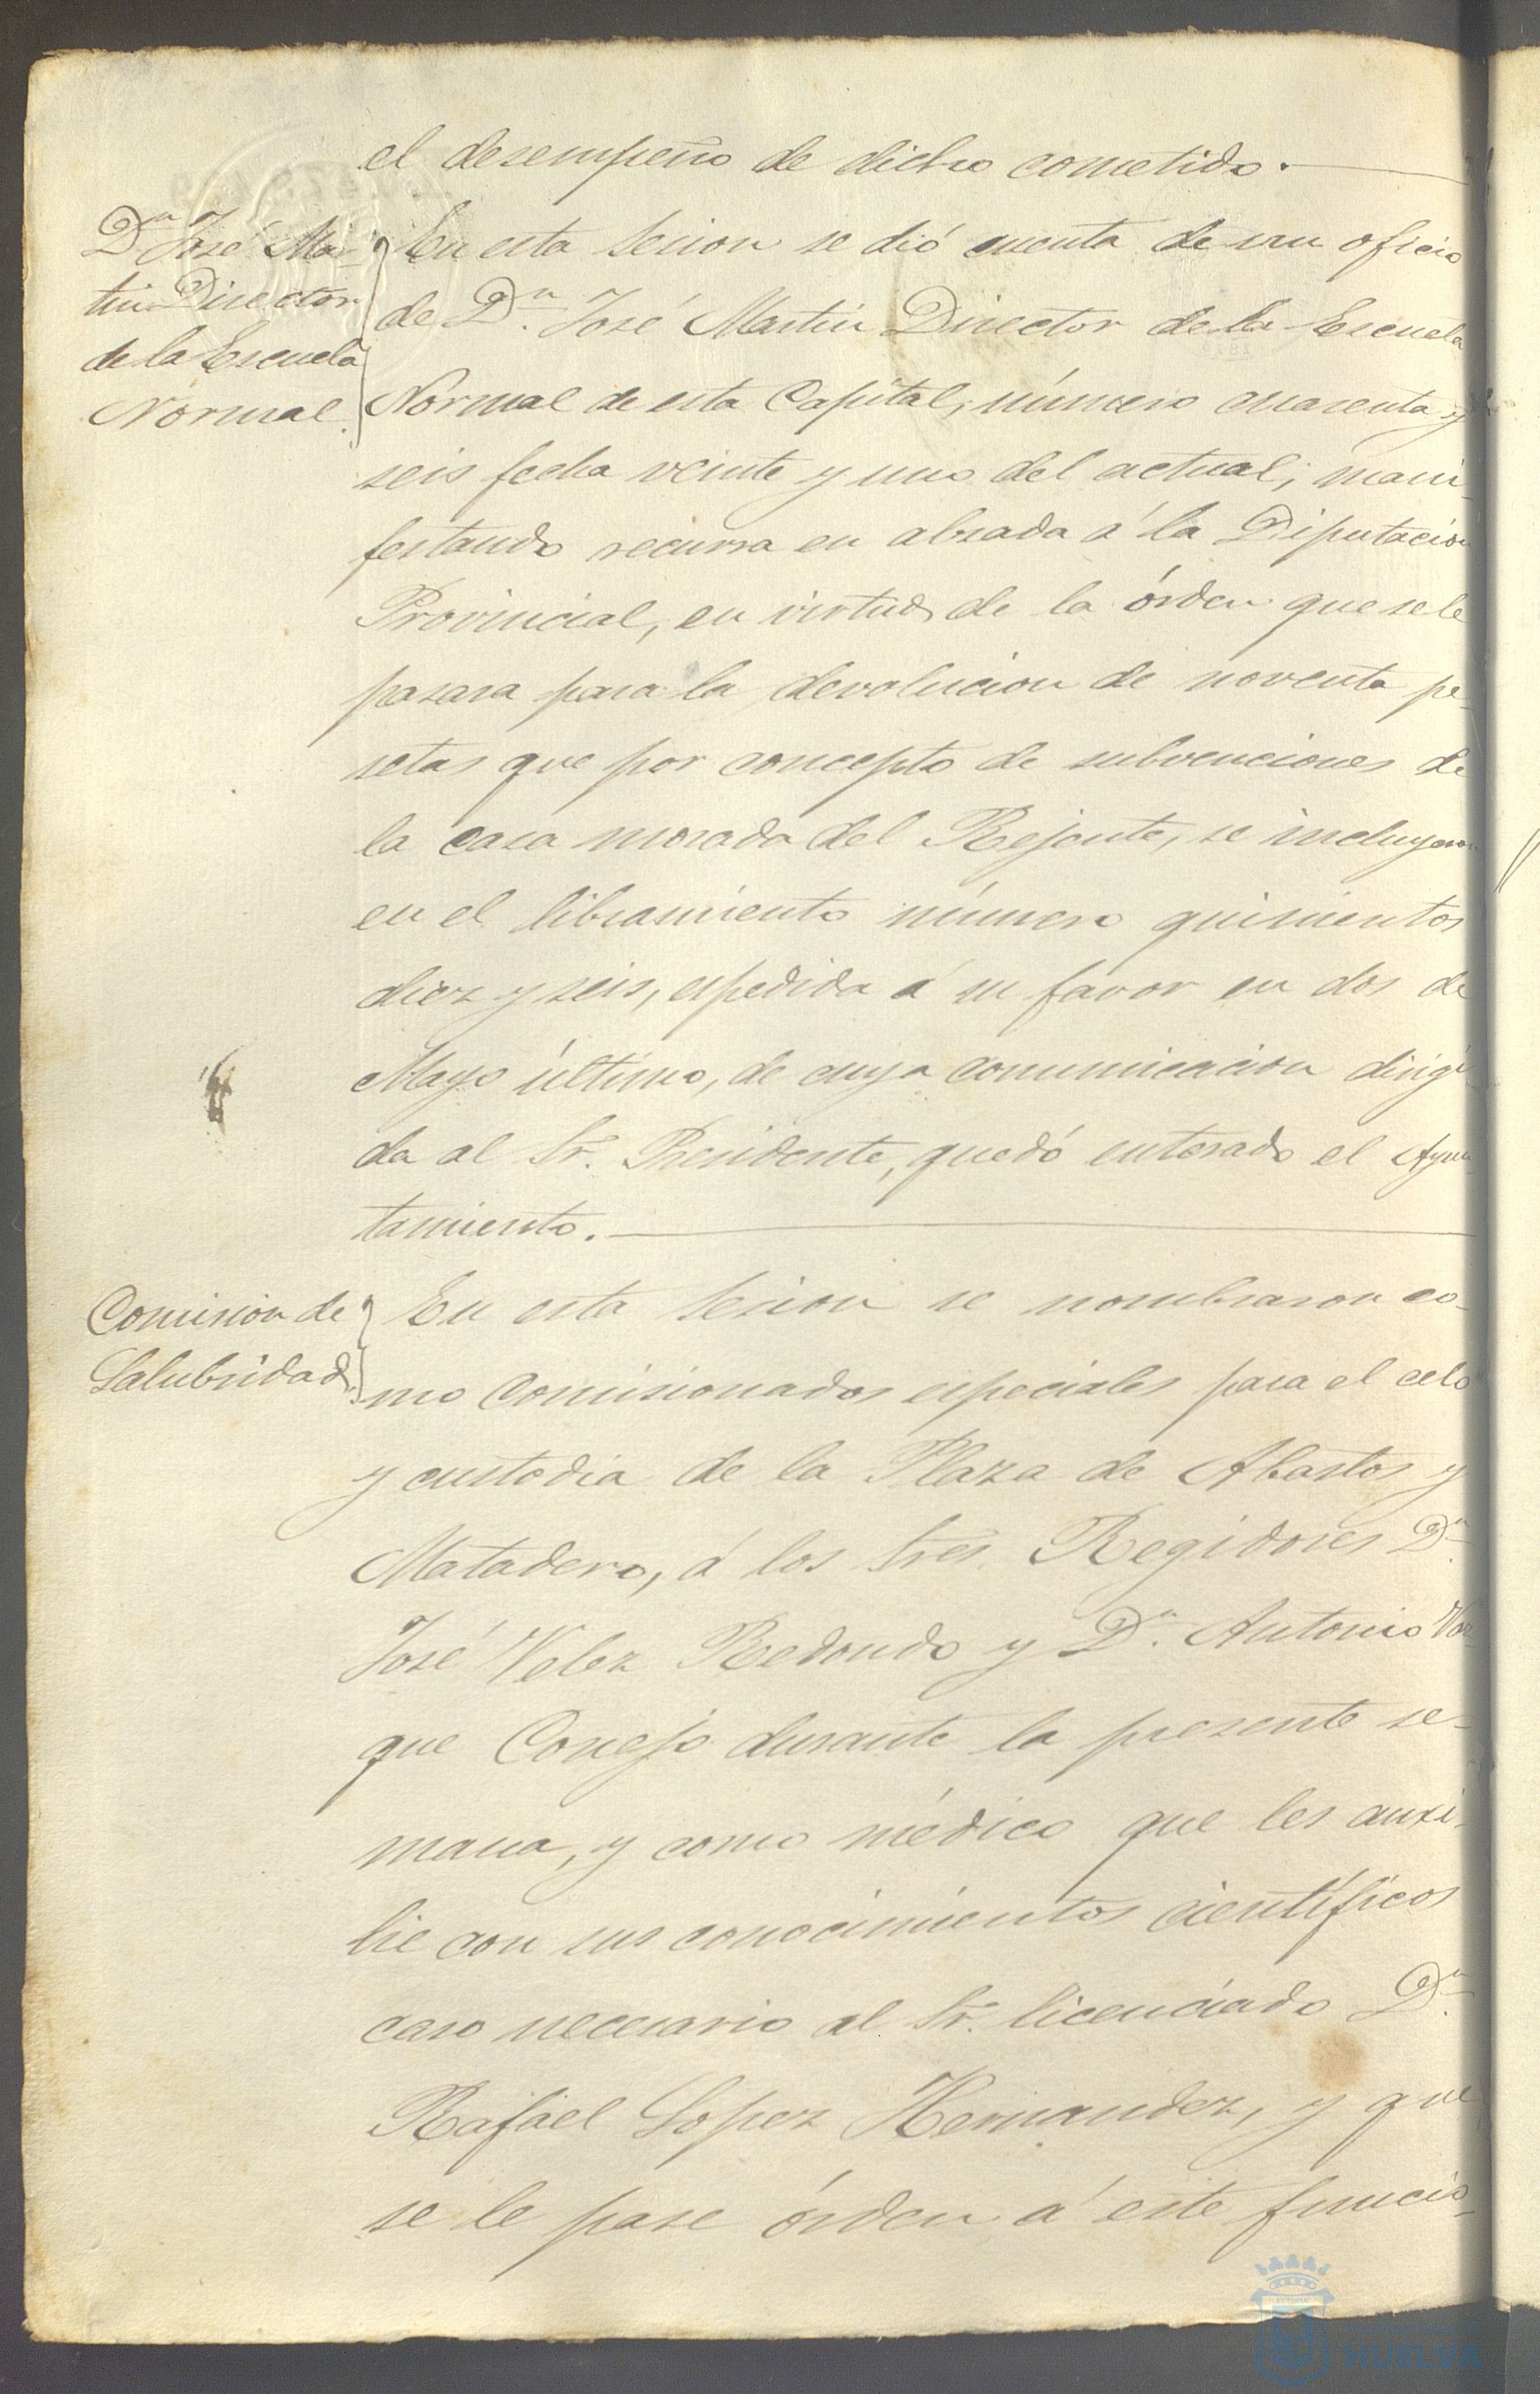 el desempeño de dicho cometido.
Dn José Mar-
tin Director
de la Escuela
Normal.
En esta Sesion se dió cuenta de un oficio
de Dn. José Martin Director de la Escuela
Normal de esta Capital, número cuarenta y
seis fecha veinte y uno del actual, mani-
festando recurra en alsada á la Diputacion
Provincial, en virtud de la órden que se le
pasara para la devolucion de noventa pe-
setas que por concepto de subvenciones de
la casa morada del Rejente, se incluyeron
en el libramiento número quinientos
diez y seis, espedida á su favor en dos de
Mayo último, de cuya comunicacion dirigi-
da al Sr. Presidente, quedó enterado el Ayun
tamiento.
Comision de
Salubridad.
En esta Sesion se nombraron co-
mo Comisionados especiales para el celo
y custodia de la Plaza de Abastos y
Matadero, á los Sres. Regidores Dn.
José Velez Redondo y Dn. Antonio Vaz
que Conejo durante la presente se-
mana, y como médico que les auxi-
lie con sus conocimientos científicos
caso necesario al Sr. licenciado Dn.
Rafael Lopez Hernandez, y que
se le pase órden á este funcio-
HUELVA